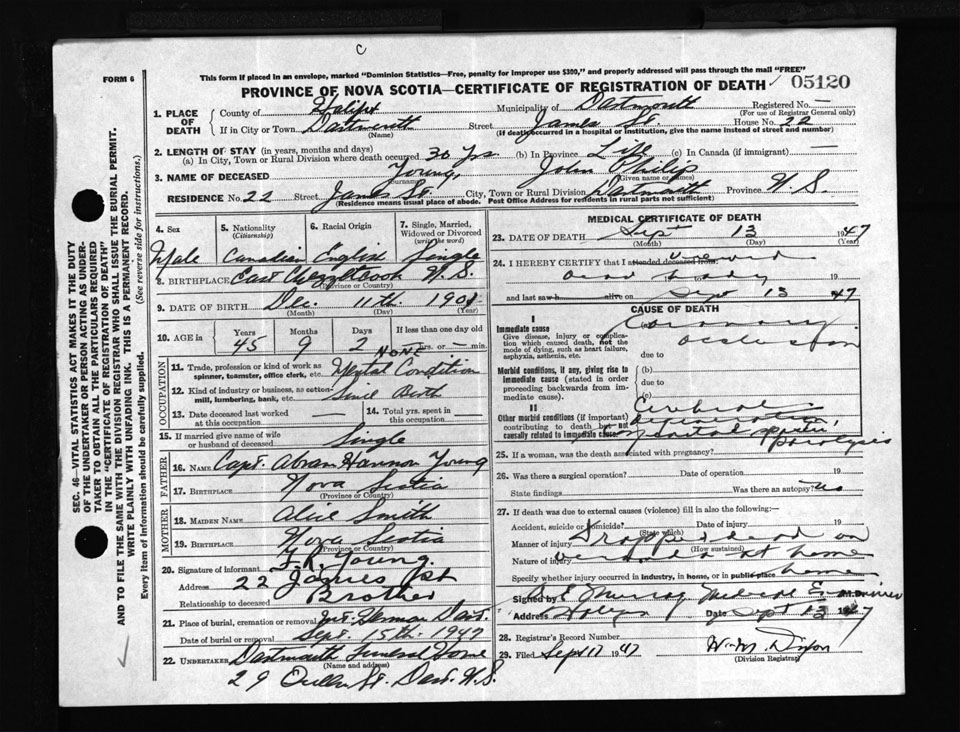 C
FORM 6
This form if placed in an envelope, marked "Dominion Statistics—Free, penalty for improper use $300," and properly addressed will pass through the mail "FREE"
PROVINCE OF NOVA SCOTIA—CERTIFICATE OF REGISTRATION OF DEATH
05120
1. PLACE OF DEATH
County of Halifax
Municipality of Dartmouth
Registered No.
(For use of Registrar General only)
If in City or Town Dartmouth
(Name)
Street James St.
House No. 22
(If death occurred in a hospital or institution, give the name instead of street and number)
2. LENGTH OF STAY (in years, months and days)
(a) In City, Town or Rural Division where death occurred 30 Yrs (b) In Province Life (c) In Canada (if immigrant) —
3. NAME OF DECEASED Young, John Philip
(Surname) (Given name or names)
RESIDENCE No. 22 Street James St. City, Town or Rural Division Dartmouth Province N.S.
(Residence means usual place of abode. Post Office Address for residents in rural parts not sufficient)
4. Sex
Male
5. Nationality
(Citizenship)
Canadian
6. Racial Origin
English
7. Single, Married, Widowed or Divorced
(write the word)
Single
8. BIRTHPLACE East Chezzetcook N.S.
(Province or Country)
9. DATE OF BIRTH Dec. 11th 1901
(Month) (Day) (Year)
10. AGE in
Years Months Days If less than one day old
45 9 2 — hrs. or — min.
OCCUPATION
11. Trade, profession or kind of work as spinner, teamster, office clerk, etc.
NONE
Mental Condition
12. Kind of industry or business, as cotton mill, lumbering, bank, etc.
Since Birth
13. Date deceased last worked at this occupation —
14. Total yrs. spent in this occupation —
15. If married give name of wife or husband of deceased Single
FATHER
16. NAME Capt. Abram Hannon Young
17. BIRTHPLACE Nova Scotia
(Province or Country)
MOTHER
18. MAIDEN NAME Alice Smith
19. BIRTHPLACE Nova Scotia
(Province or Country)
20. Signature of informant Young.
Address 22 James St
Relationship to deceased Brother
21. Place of burial, cremation or removal Mt. Hermon Dart.
Date of burial or removal Sept. 15th 1947
22. UNDERTAKER Dartmouth Funeral Home
(Name and address)
29 Queen St. Dart. N.S.
MEDICAL CERTIFICATE OF DEATH
23. DATE OF DEATH Sept 13 1947
(Month) (Day) (Year)
24. I HEREBY CERTIFY that I attended deceased from: viewed
dead body 19
and last saw h alive on Sept 13 1947
CAUSE OF DEATH
I
Immediate cause
Give disease, injury or complication which caused death, not the mode of dying, such as heart failure, asphyxia, asthenia, etc.
Coronary
occlusion
due to
Morbid conditions, if any, giving rise to immediate cause (stated in order proceeding backwards from immediate cause).
(b)
due to
(c)
II
Other morbid conditions (if important) contributing to death but not causally related to immediate cause.
paralysis
25. If a woman, was the death associated with pregnancy?
26. Was there a surgical operation? Date of operation 19
State findings Was there an autopsy? no
27. If death was due to external causes (violence) fill in also the following:—
Accident, suicide or homicide? Date of injury 19
(State which)
Manner of injury Dropped dead on
(How sustained)
Nature of injury veranda at home
Specify whether injury occurred in industry, in home, or in public place home
Signed by Murray Medical Examiner M.D.
Address Date Sept 13 1947
28. Registrar's Record Number
29. Filed Sept 17 1947 W. M. Dixon
(Division Registrar)
SEC. 46—VITAL STATISTICS ACT MAKES IT THE DUTY
OF THE UNDERTAKER OR PERSON ACTING AS UNDERTAKER
TO OBTAIN ALL THE PARTICULARS REQUIRED
IN THE "CERTIFICATE OF REGISTRATION OF DEATH"
AND TO FILE THE SAME WITH THE DIVISION REGISTRAR WHO SHALL ISSUE THE BURIAL PERMIT.
WRITE PLAINLY WITH UNFADING INK. THIS IS A PERMANENT RECORD.
Every item of information should be carefully supplied. (See reverse side for instructions.)